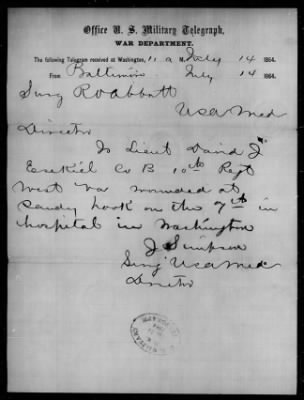 Office U. S. Military Telegraph,
WAR DEPARTMENT.
The following Telegram received at Washington, 11 a M. July 14 1864.
From Baltimore July 14 1864.
Surg R O Abbott
U S a Med
Director
Is Lieut David J
Ezekiel Co B 10th Regt
West Va wounded at
Sandy hook on the 7th in
hospital in Washington
J Simpson
Surg U S a Med
Director